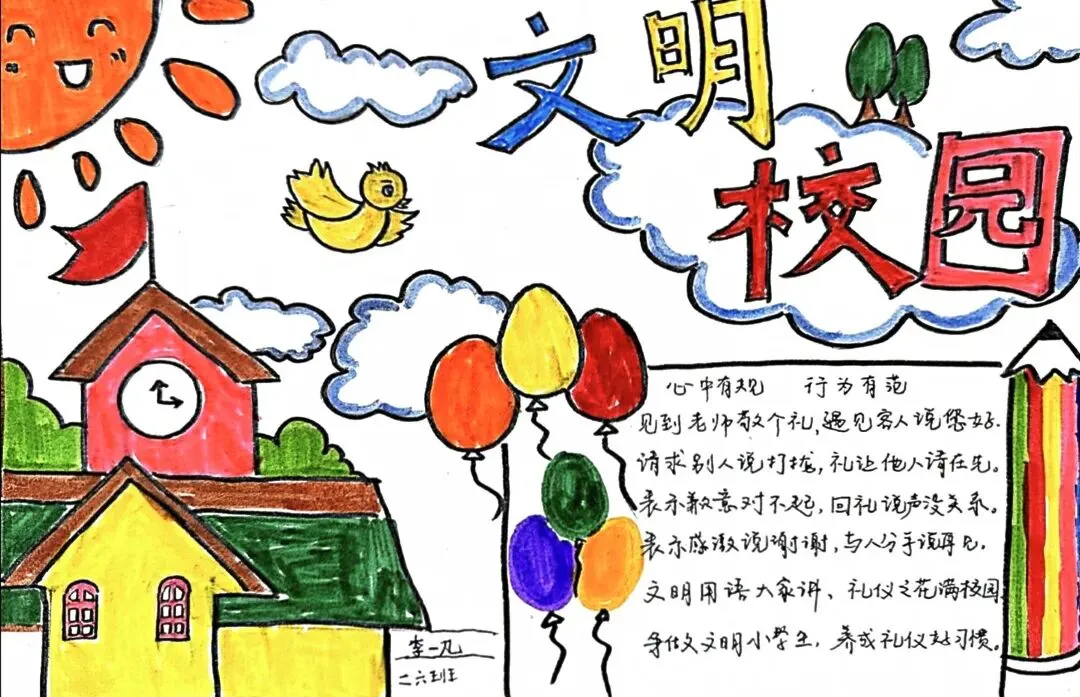 文明
校园
心中有规 行为有范
见到老师敬个礼,遇见客人说您好.
请求别人说打扰,礼让他人请在先。
表示歉意对不起,回礼说声没关系。
表示感激说谢谢,与人分手说再见.
文明用语大家讲、礼仪之花满校园
争做文明小学生,养成礼仪好习惯。
李一凡
二六班